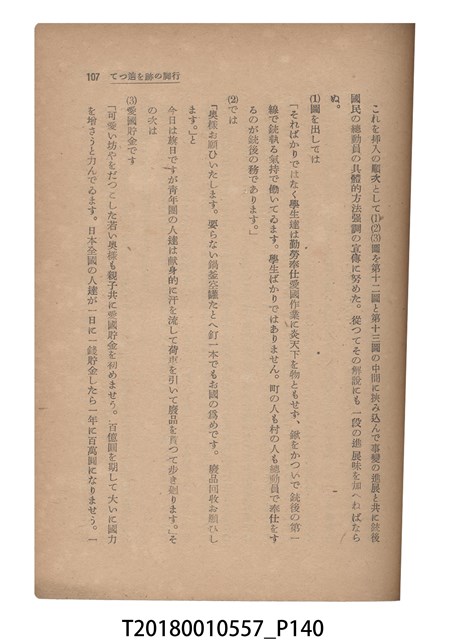 行脚の跡を追つて 107
これを挿入の順次として(1)(2)(3)圖を第十二圖と第十三圖の中間に挾み込んで事變の進展と共に銃後
國民の總動員の具體的方法强調の宣傳に努めた。從つてその解說にも一段の進展味を加へねばなら
ぬ。
(1)圖を出しては
「そればかりではなく學生達は勤勞奉仕愛國作業に炎天下を物ともせず、鍬をかついで銃後の第一
線で銃執る氣持で働いてゐます。學生ばかりではありません。町の人も村の人も總動員で奉仕をす
るのが銃後の務であります。」
(2)では
「奧樣お願ひいたします。要らない鍋釜空罐たとへ釘一本でもお國の爲めです。廢品回收お願ひし
ます。」と
今日は旗日ですが青年團の人達は献身的に汗を流して荷車を引いて廢品を貰つて步き廻ります。」そ
の次は
(3)愛國貯金です
「可愛い坊やをだつこした若い奧樣も親子共に愛國貯金を初めませう。百億圓を期して大いに國力
を增さうと力んでゐます。日本全國の人達が一日に一錢貯金したら一年に百萬圓になりませう。「
T20180010557_P140